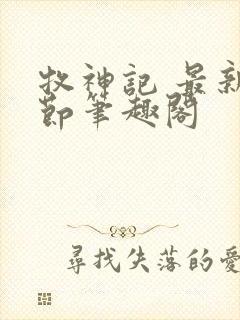 牧神記 最新
節筆趣閣
尋找失落的愛